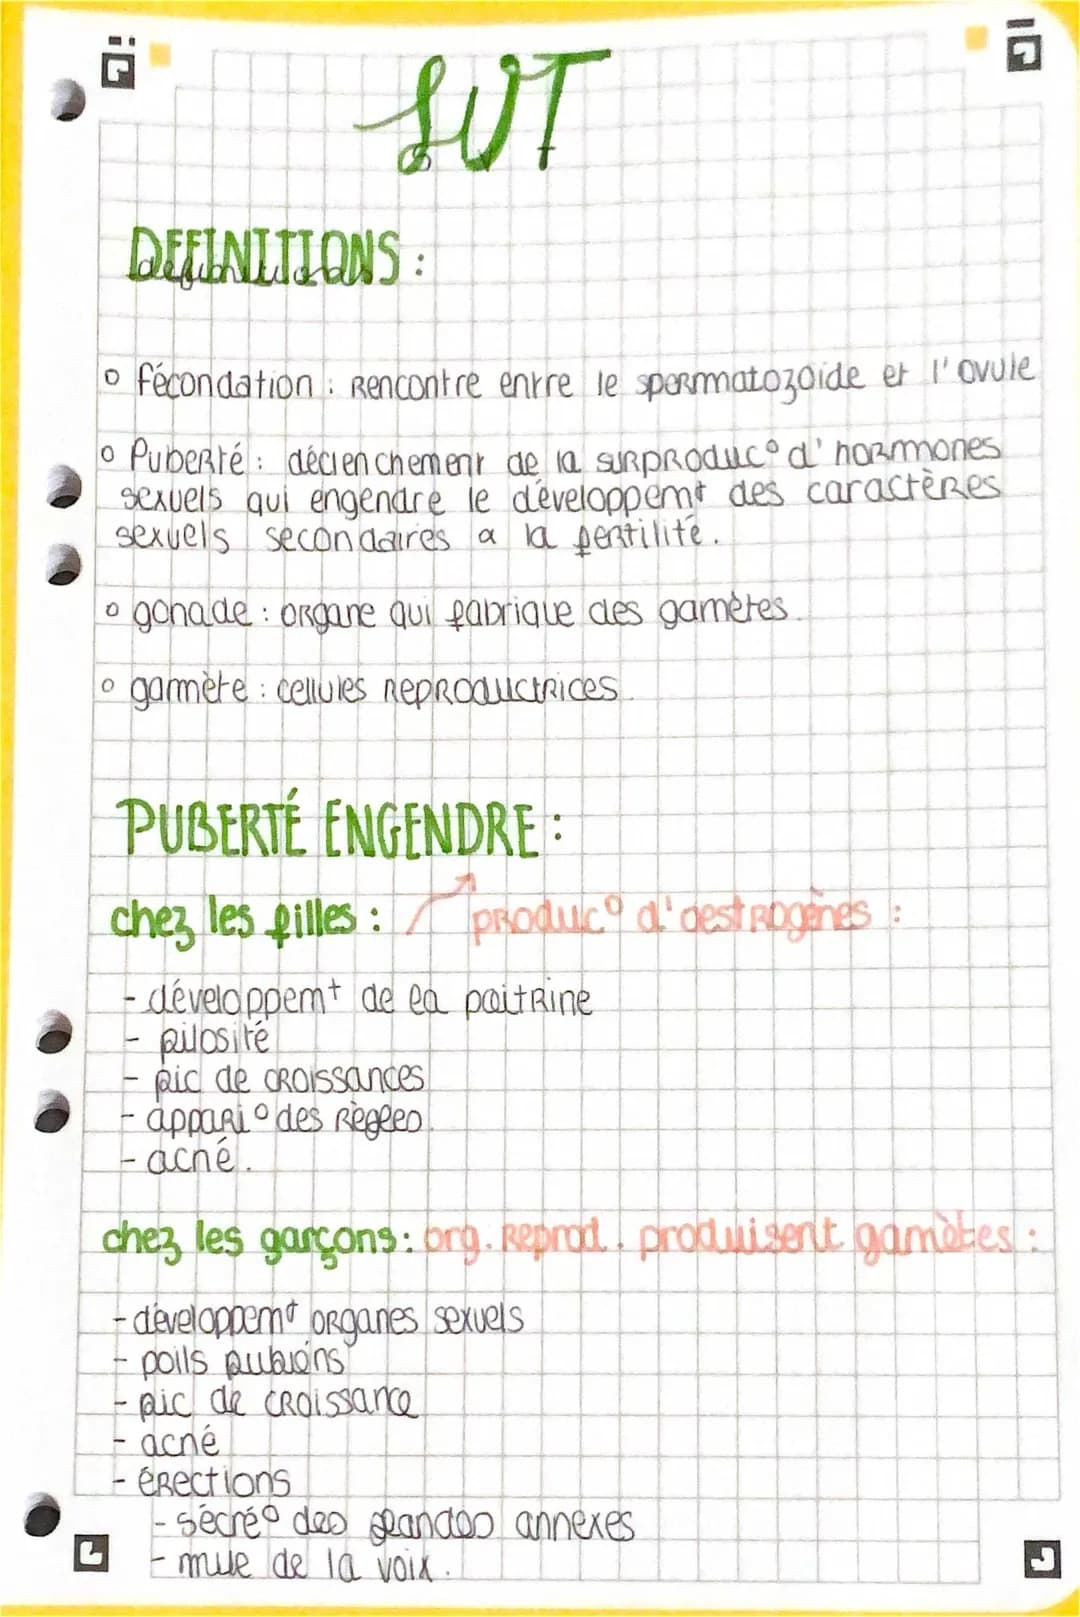 SVT
DEFINITIONS :
définitions
o fécondation : Rencontre entre le spermatozoide et l'ovule
o Puberté : déclenchement de la surproduc° d'hormones
sexuels qui engendre le développemt des caractères
sexuels secondaires a la fertilité.
o gonade : organe qui fabrique des gamètes.
o gamète : cellules reproductrices.
PUBERTÉ ENGENDRE :
chez les filles : produc° d'oestrogènes :
- développemt de la poitrine
- pilosité
- pic de croissances
- appari° des règles.
- acné.
chez les garçons : org. Reprod. produisent gamètes :
- développemt organes sexuels
- poils pubiens
- pic de croissance
- acné
- érections
- sécré° des glandes annexes
- mue de la voix.